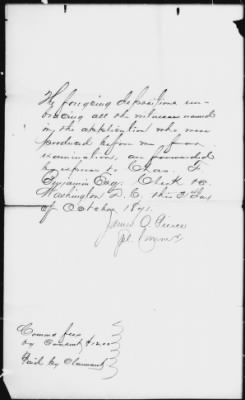 The foregoing depositions em-
bracing all the witnesses named
in the application who were
produced before me for
examination, are forwarded
by express to Chas. F.
Benjamin Esq. Clerk &c.
Washington D. C. this 31 day
of October 1871.
James O. Pierce
Spl. Commr
Comms fees
by
Paid by Claimant